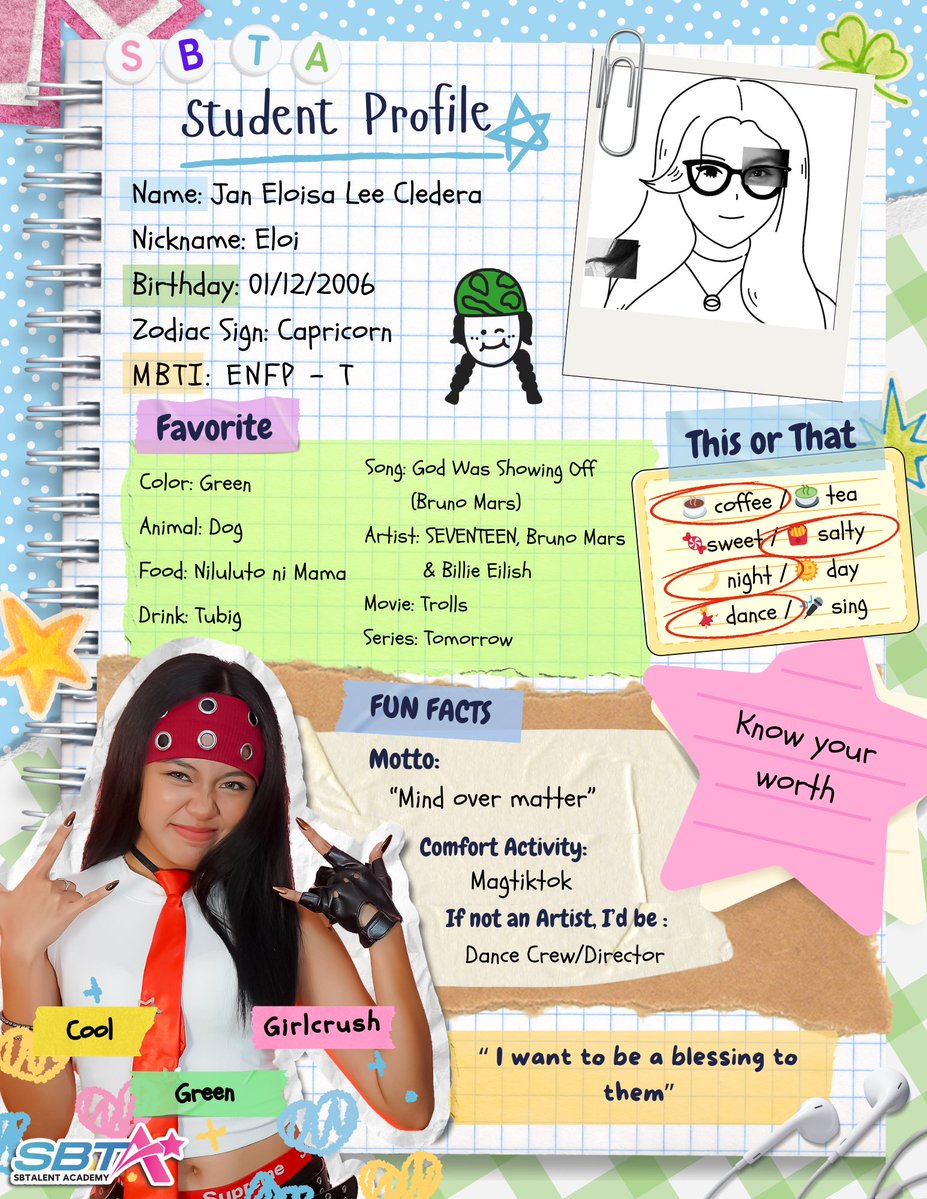 SBTA
Student Profile
Name: Jan Eloisa Lee Cledera
Nickname: Eloi
Birthday: 01/12/2006
Zodiac Sign: Capricorn
MBTI: ENFP - T
Favorite
Color: Green
Animal: Dog
Food: Niluluto ni Mama
Drink: Tubig
Song: God Was Showing Off
(Bruno Mars)
Artist: SEVENTEEN, Bruno Mars
& Billie Eilish
Movie: Trolls
Series: Tomorrow
This or That
coffee / tea
sweet / salty
night / day
dance / sing
FUN FACTS
Motto:
“Mind over matter”
Comfort Activity:
Magtiktok
If not an Artist, I'd be :
Dance Crew/Director
Know your
worth
Cool
Girlcrush
Green
“ I want to be a blessing to
them”
SBTA
SBTALENT ACADEMY
Supreme